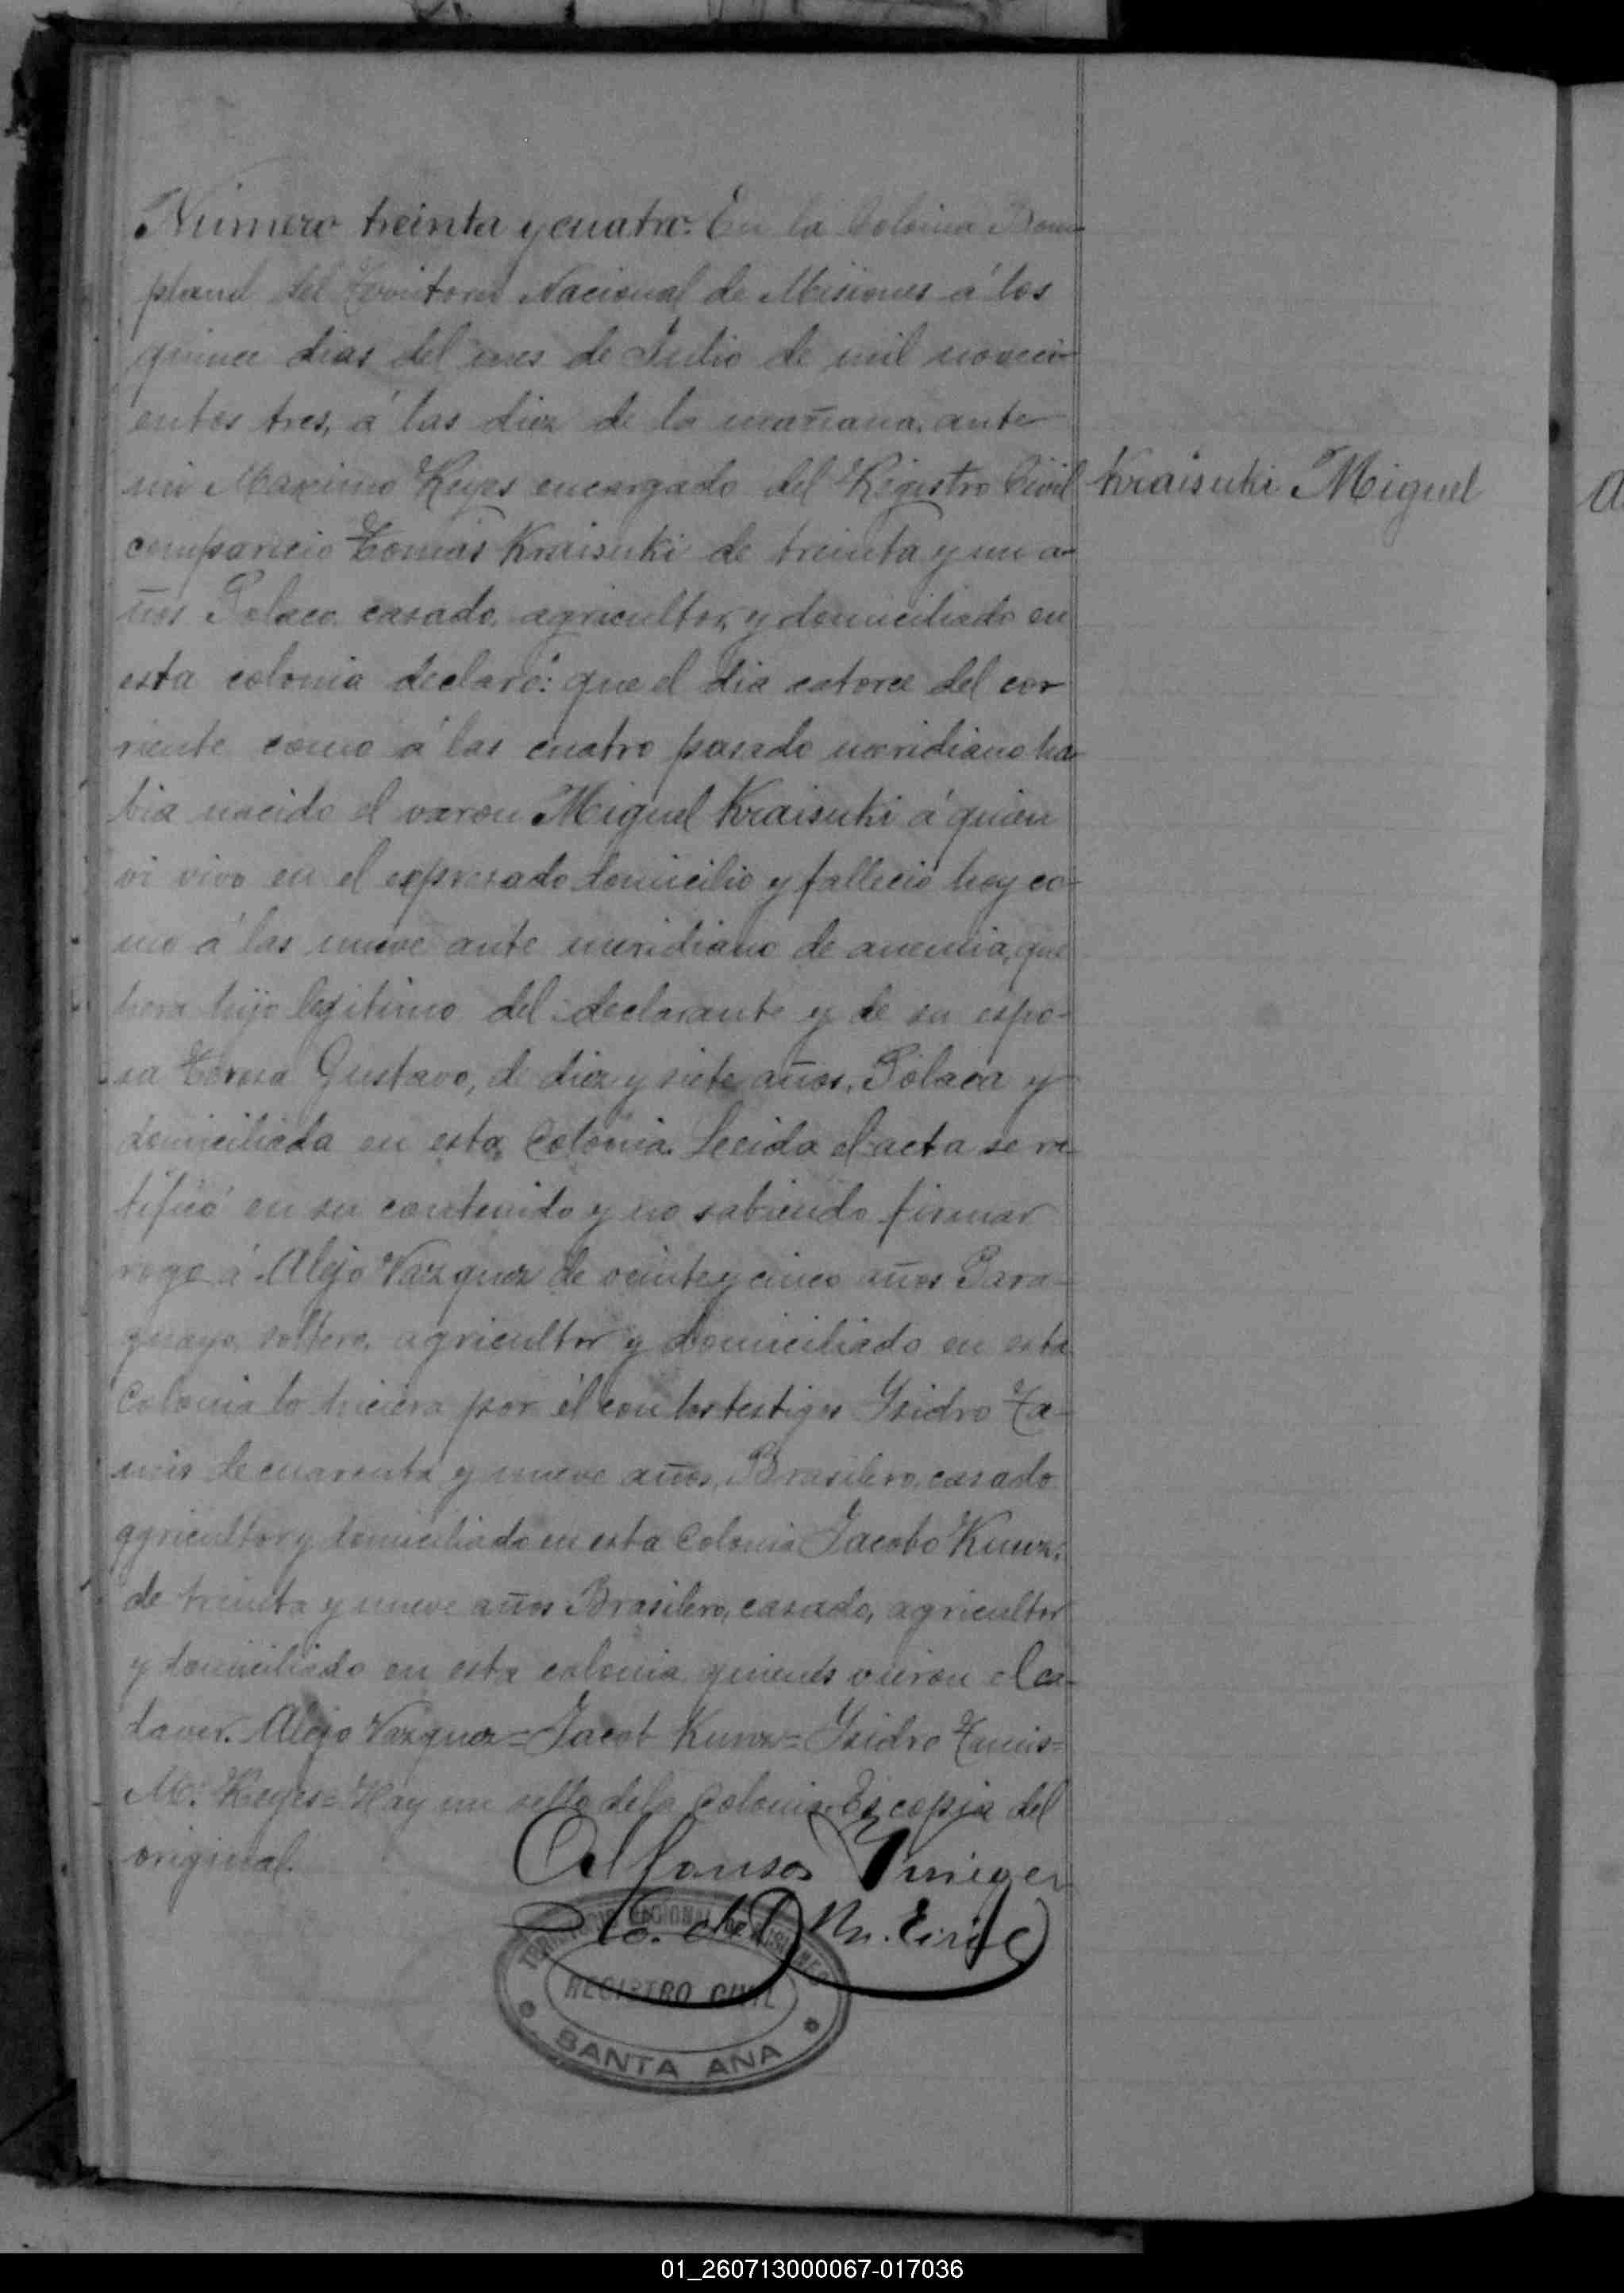 Número treinta y cuatro. En la Colonia Bom
pland del Territorio Nacional de Misiones á los
quince dias del mes de Julio de mil noveci-
entos tres, á las diez de la mañana, ante
mi Maximo Reyes encargado del Registro Civil
Kraisuki Miguel
comparecio Tomás Kraisuki de treinta y un a-
ños Polaco, casado, agricultor, y domiciliado en
esta colonia declaró: que el dia catorce del cor
riente como á las cuatro pasado meridiano ha-
bia nacido el varon Miguel Kraisuki á quien
vi vivo en el expresado domicilio y fallecio hoy co-
mo á las nueve ante meridiano de anemia, que
hera hijo legitimo del declarante y de su espo-
sa Teresa Gustavo, de diez y siete años, Polaca y
domiciliada en esta Colonia. Leeida el acta se ra-
tificó en su contenido y no sabiendo firmar
rogo á Alejo Vazquez de veinte y cinco años Para-
guayo, soltero, agricultor y domiciliado en esta
Colonia lo hiciera por él con los testigos Ysidro Ta-
mis de cuarenta y nueve años, Brasilero, casado
agricultor y domiciliado en esta Colonia Jacobo Kunz,
de treinta y nueve años Brasilero, casado, agricultor
y domiciliado en esta colonia quienes vieron el ca-
daver. Alejo Vazquez = Jacob Kunz = Ysidro Tamis =
M. Reyes = Hay un sello de la Colonia. Es copia del
original.
Alfonso
TERRITORIO NACIONAL DE MISIONES
REGISTRO CIVIL
SANTA ANA
01_260713000067-017036